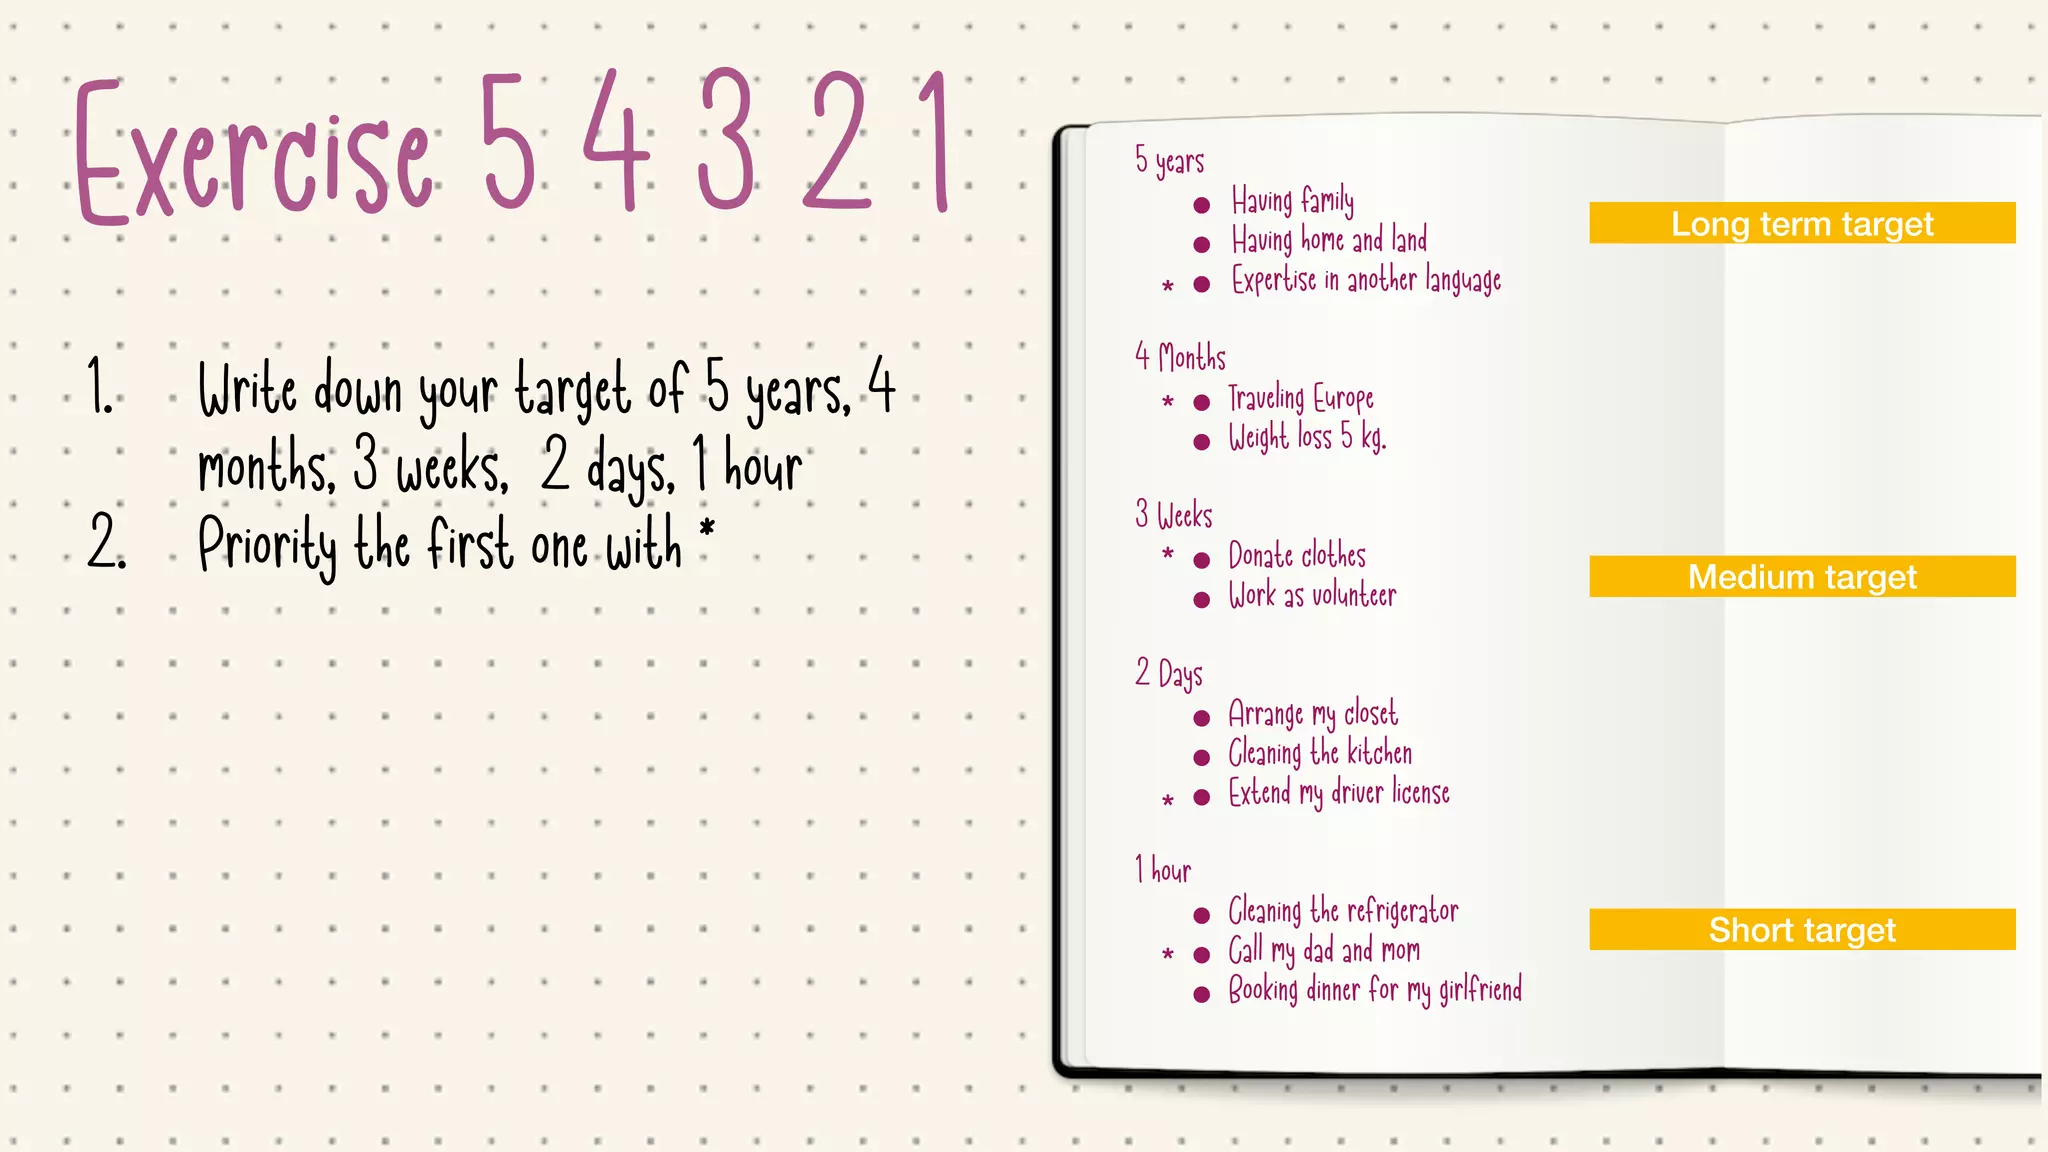 Exercise 5 4 3 2 1
1. Write down your target of 5 years, 4
months, 3 weeks, 2 days, 1 hour
2. Priority the first one with *
5 years
● Having family
● Having home and land
* ● Expertise in another language
4 Months
* ● Traveling Europe
● Weight loss 5 kg.
3 Weeks
* ● Donate clothes
● Work as volunteer
2 Days
● Arrange my closet
● Cleaning the kitchen
* ● Extend my driver license
1 hour
● Cleaning the refrigerator
* ● Call my dad and mom
● Booking dinner for my girlfriend
Long term target
Medium target
Short target